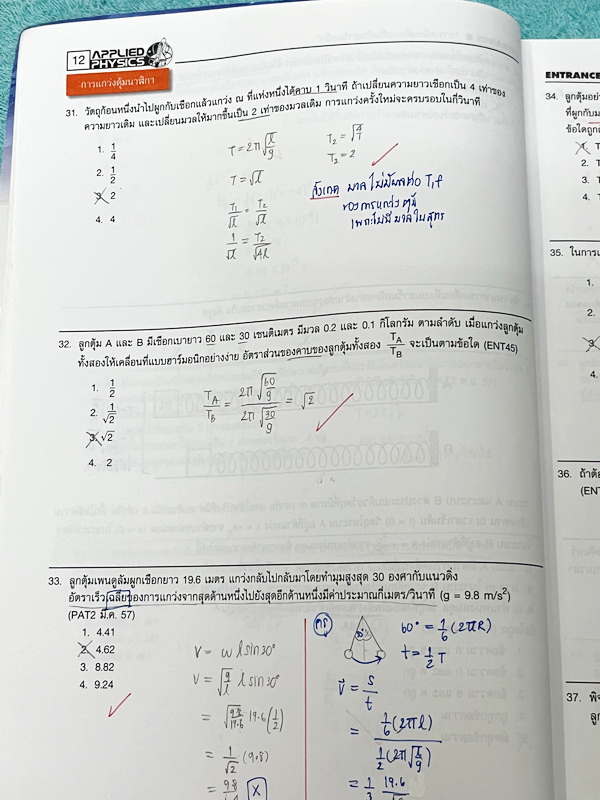 12 APPLIED PHYSICS
การแกว่งตุ้มนาฬิกา
31. วัตถุก้อนหนึ่งนำไปผูกกับเชือกแล้วแกว่ง ณ ที่แห่งหนึ่งได้คาบ 1 วินาที ถ้าเปลี่ยนความยาวเชือกเป็น 4 เท่าของ
ความยาวเดิม และเปลี่ยนมวลให้มากขึ้นเป็น 2 เท่าของมวลเดิม การแกว่งครั้งใหม่จะครบรอบในกี่วินาที
1. 1/4
2. 1/2
3. 2
4. 4
T = 2π√(l/g)
T = √l
T₁/√l = T₂/√l
1/√l = T₂/√4l
T₂ = √(4/1)
T₂ = 2
สังเกต มวลไม่มีผลต่อ T, f
ของการแกว่งตุ้ม
เพราะไม่มีมวลในสูตร
32. ลูกตุ้ม A และ B มีเชือกเบายาว 60 และ 30 เซนติเมตร มีมวล 0.2 และ 0.1 กิโลกรัม ตามลำดับ เมื่อแกว่งลูกตุ้ม
ทั้งสองให้เคลื่อนที่แบบฮาร์มอนิกอย่างง่าย อัตราส่วนของคาบของลูกตุ้มทั้งสอง T_A/T_B จะเป็นตามข้อใด (ENT45)
1. 1/2
2. 1/√2
3. √2
4. 2
T_A/T_B = 2π√(60/g) / 2π√(30/g) = √2
33. ลูกตุ้มเพนดูลัมผูกเชือกยาว 19.6 เมตร แกว่งกลับไปกลับมาโดยทำมุมสูงสุด 30 องศากับแนวดิ่ง
อัตราเร็วเฉลี่ยของการแกว่งจากสุดด้านหนึ่งไปยังสุดอีกด้านหนึ่งมีค่าประมาณกี่เมตร/วินาที (g = 9.8 m/s²)
(PAT2 มี.ค. 57)
1. 4.41
2. 4.62
3. 8.82
4. 9.24
V = ω l sin30°
V = √(g/l) l sin30°
= √(9.8/19.6) 19.6 (1/2)
= 1/√2 (9.8)
X
60°
60° = 1/6 (2πR)
t = 1/2 T
v̄ = s/t
= 1/6 (2πl) / 1/2 (2π√(l/g))
ENTRANCE
34. ลูกตุ้มอย่า
ที่ผูกกับม
ข้อใดถูก
1. T
2. T
3. T
4. T
35. ในการแ
1.
2.
3.
4.
36. ถ้าต้อ
(EN
37. พิจ
ลูก